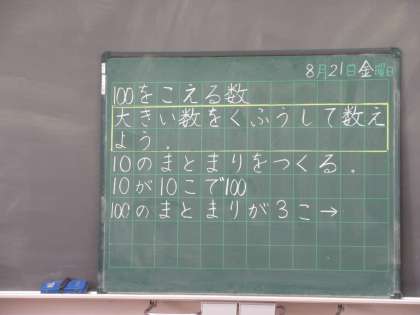 8月21日金曜日
100をこえる数
大きい数をくふうして数え
よう.
10のまとまりをつくる.
10が10こで100
100のまとまりが3こ→